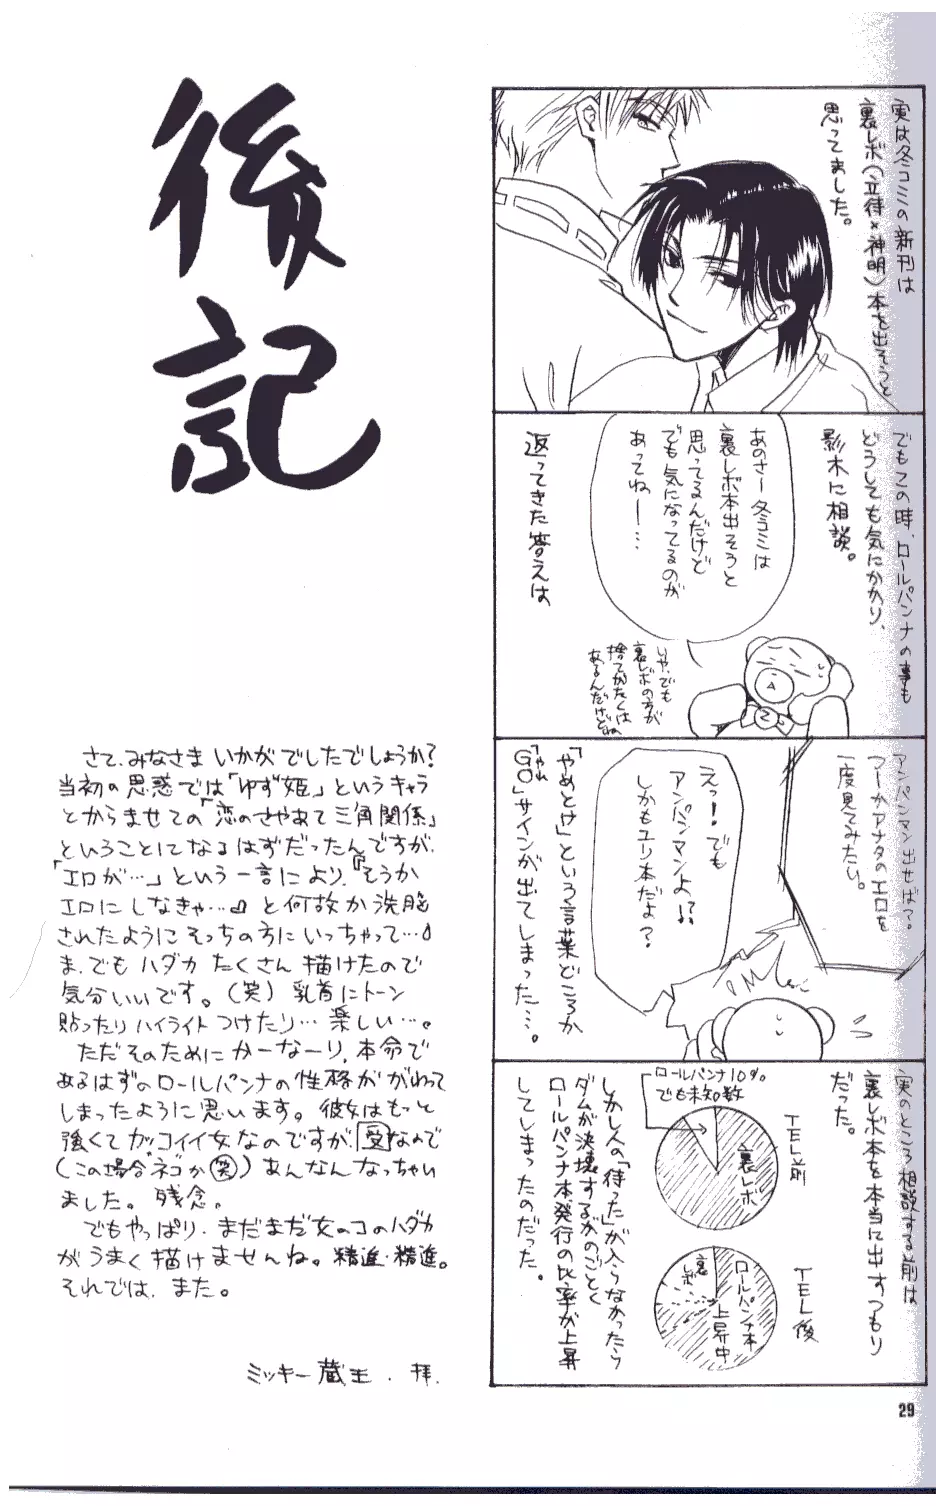 後記
実は冬コミの新刊は
裏レボ(立待×神明)本を出そうと
思ってました。
でもこの時、ロールパンナの事も
どうしても気にかかり、
影木に相談。
あのさー冬コミは
裏レボ本出そうと
思ってるんだけど
でも気になってるのが
あってねー…
いや、でも
裏レボの方が
捨てがたくは
あるんだけどね
返ってきた答えは
アンパンマン出せば?
つーかアナタのエロを
一度見てみたい。
えっ!でも
アンパンマンよ!?
しかもユリ本だよ?
「やめとけ」という言葉どころか
「やれ
GO」サインが出てしまった…。
実のところ相談する前は
裏レボ本を本当に出すつもり
だった。
TEL前
ロールパンナ10%
でも未知数
裏レボ
TEL後
ロールパンナ本
上昇中
裏レボ
しかし人の「待った」が入らなかったら
ダムが決壊するがのごとく
ロールパンナ本発行の比率が上昇
してしまったのだった。
さて、みなさま いかがでしたでしょうか?
当初の思惑では「ゆず姫」というキャラ
とからませての「恋のさやあて三角関係」
ということになるはずだったんですが、
「エロが…」という一言により、『そうか
エロにしなきゃ…』と何故か洗脳
されたようにそっちの方にいっちゃって…
ま、でもハダカたくさん描けたので
気分いいです。(笑) 乳首にトーン
貼ったりハイライトつけたり…楽しい…。
ただそのためにかーなーり、本命で
あるはずのロールパンナの性格がかわって
しまったように思います。彼女はもっと
強くてカッコイイ女なのですが、受なので
(この場合ネコか(笑)) あんなんなっちゃい
ました。残念。
でもやっぱり、まだまだ女のコのハダカ
がうまく描けませんね。精進・精進。
それでは、また。
ミッキー蔵王、拝、
29